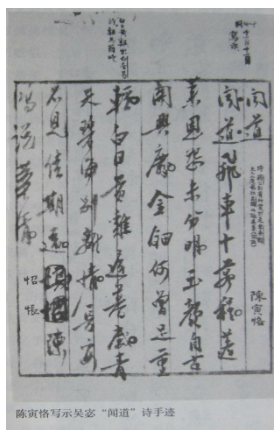 聞道
陳寅恪
聞道飛車十萬程蓬
萊恩怨未分明玉顏自古
關興廢金鈿何曾足重
輕白日黃雞遲暮感青
天碧海別離情長安
不見佳期遠惆悵陳
鴻說華清
惆悵
陈寅恪写示吴宓“闻道”诗手迹